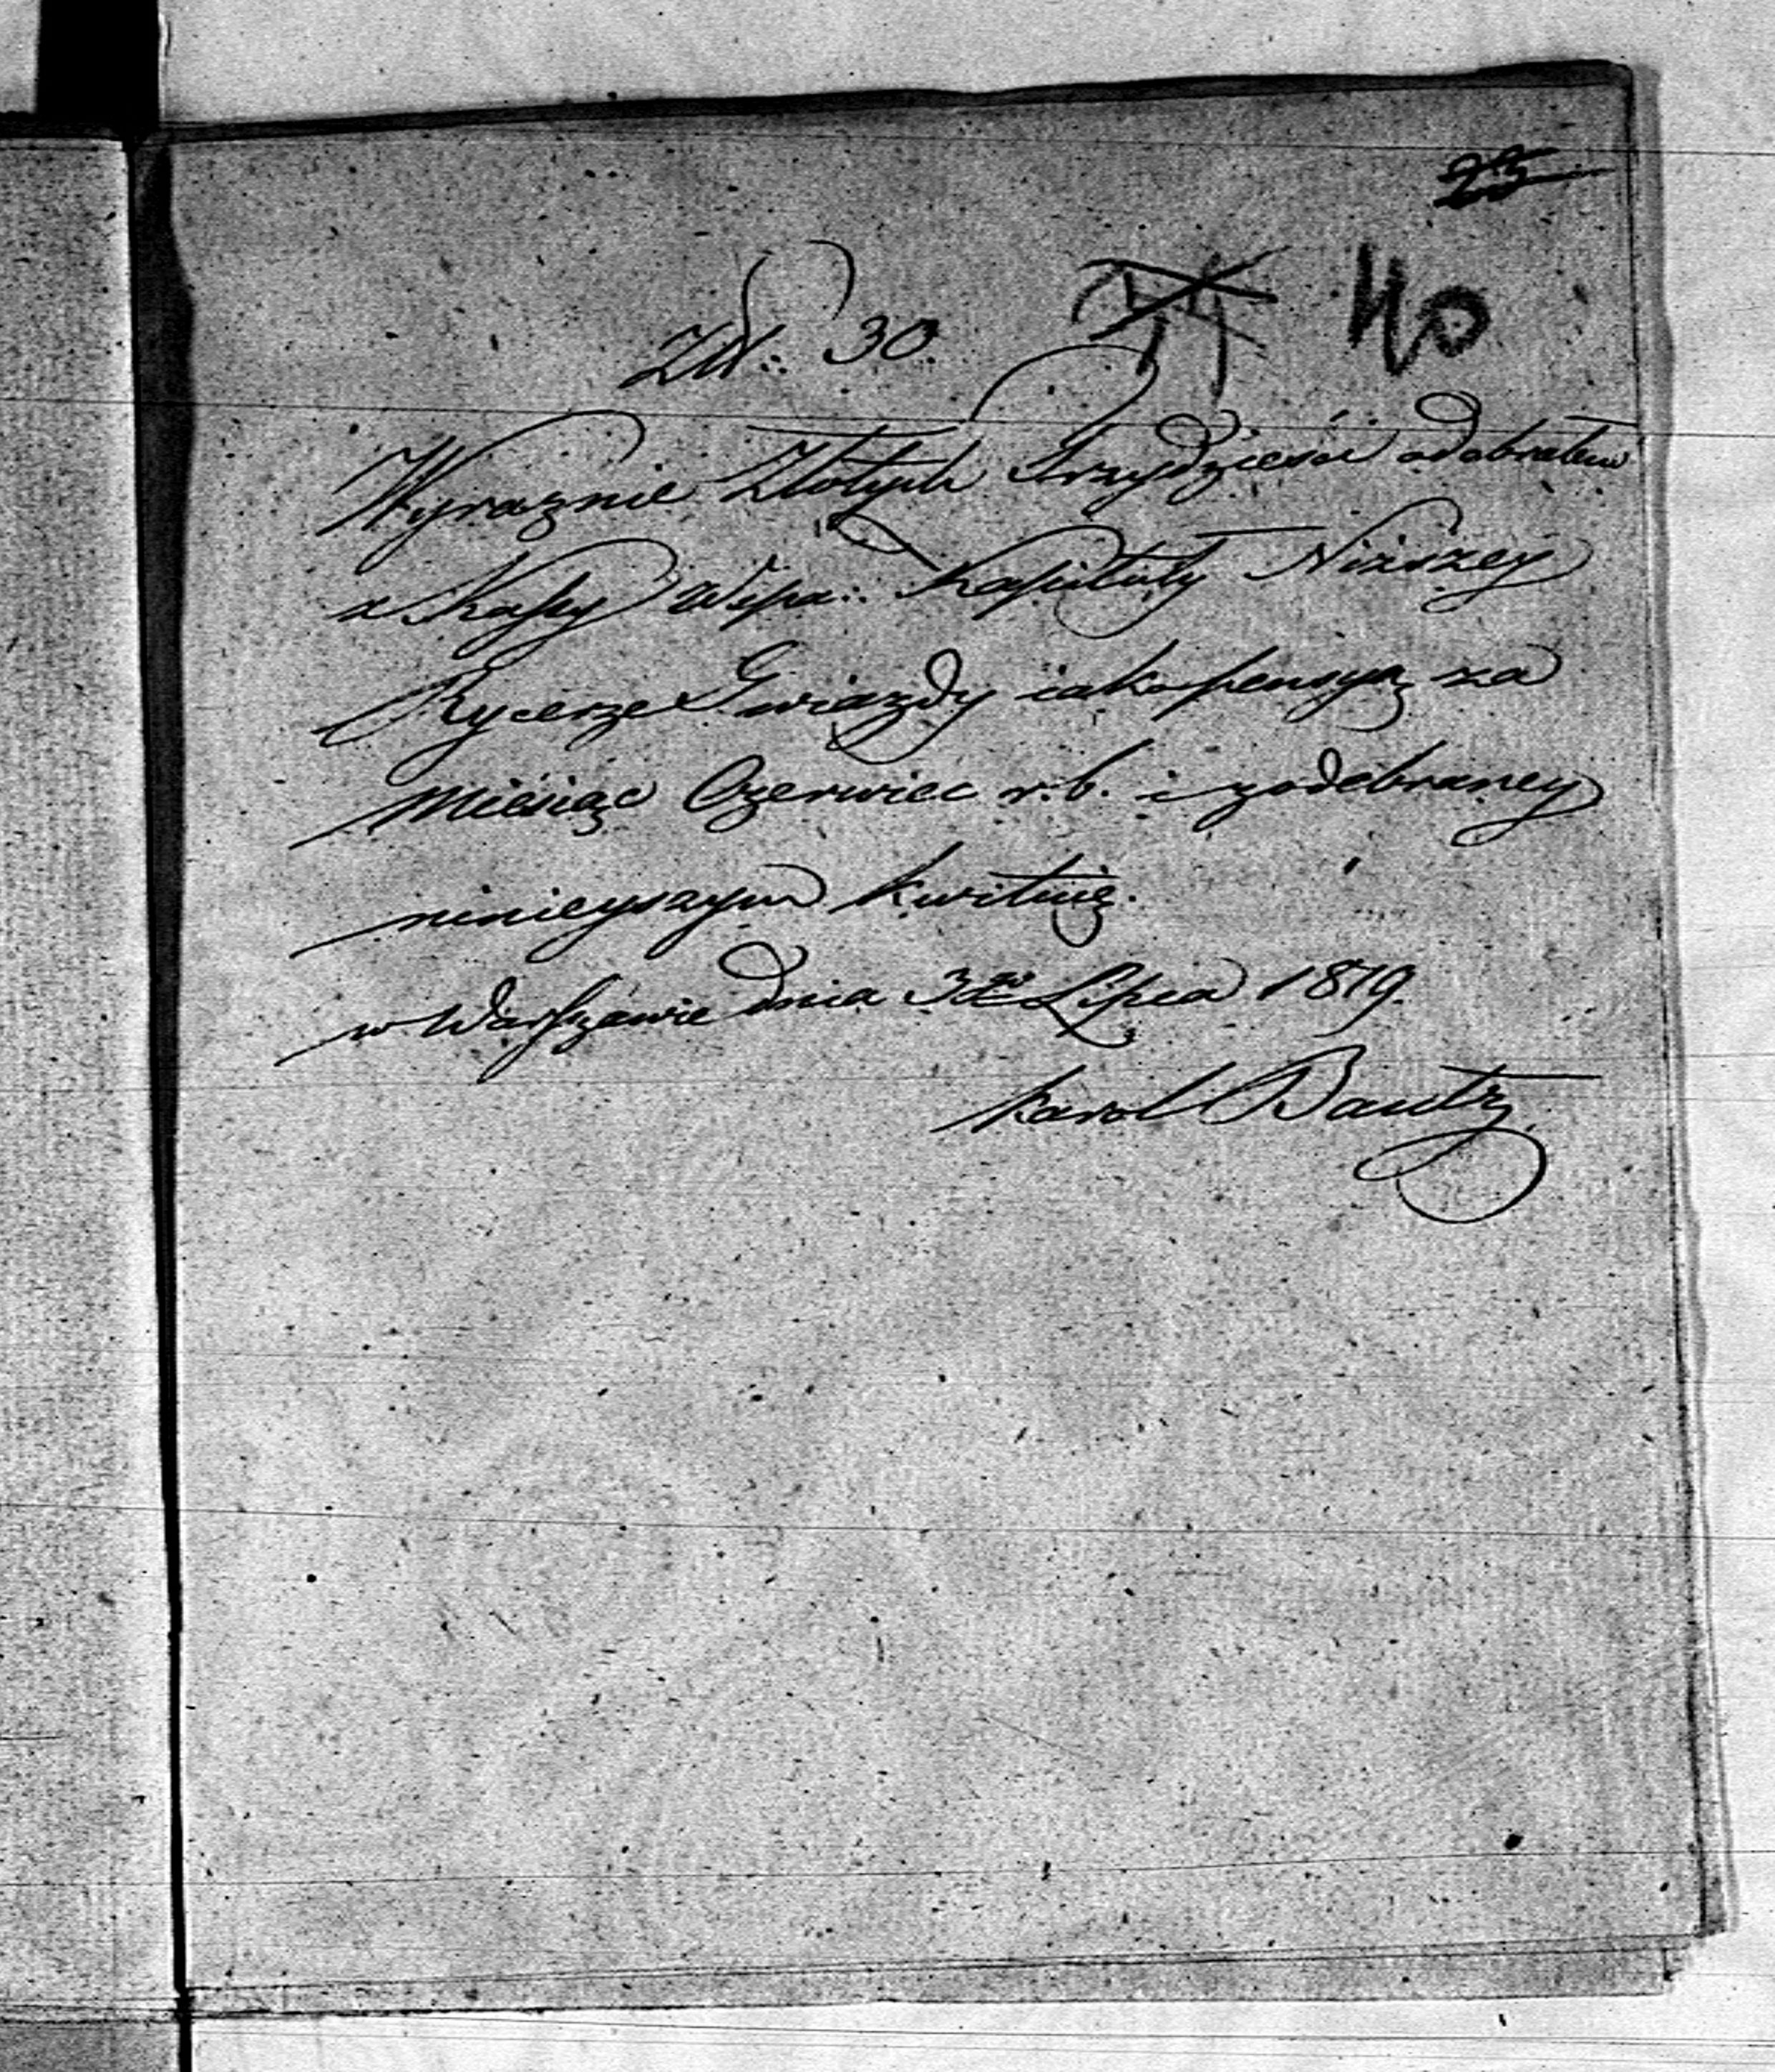 23
40
Złł: 30.
Wyraznie Złotych Trzydzieści odebrałem
z Kassy Wspa: Kapituły Niższey
Rycerze Gwiazdy iako pensyą za
Miesiąc Czerwiec r. b. i z odebraney
ninieyszym kwituię.
w Warszawie dnia 3go Lipca 1819.
Karol Bautz.